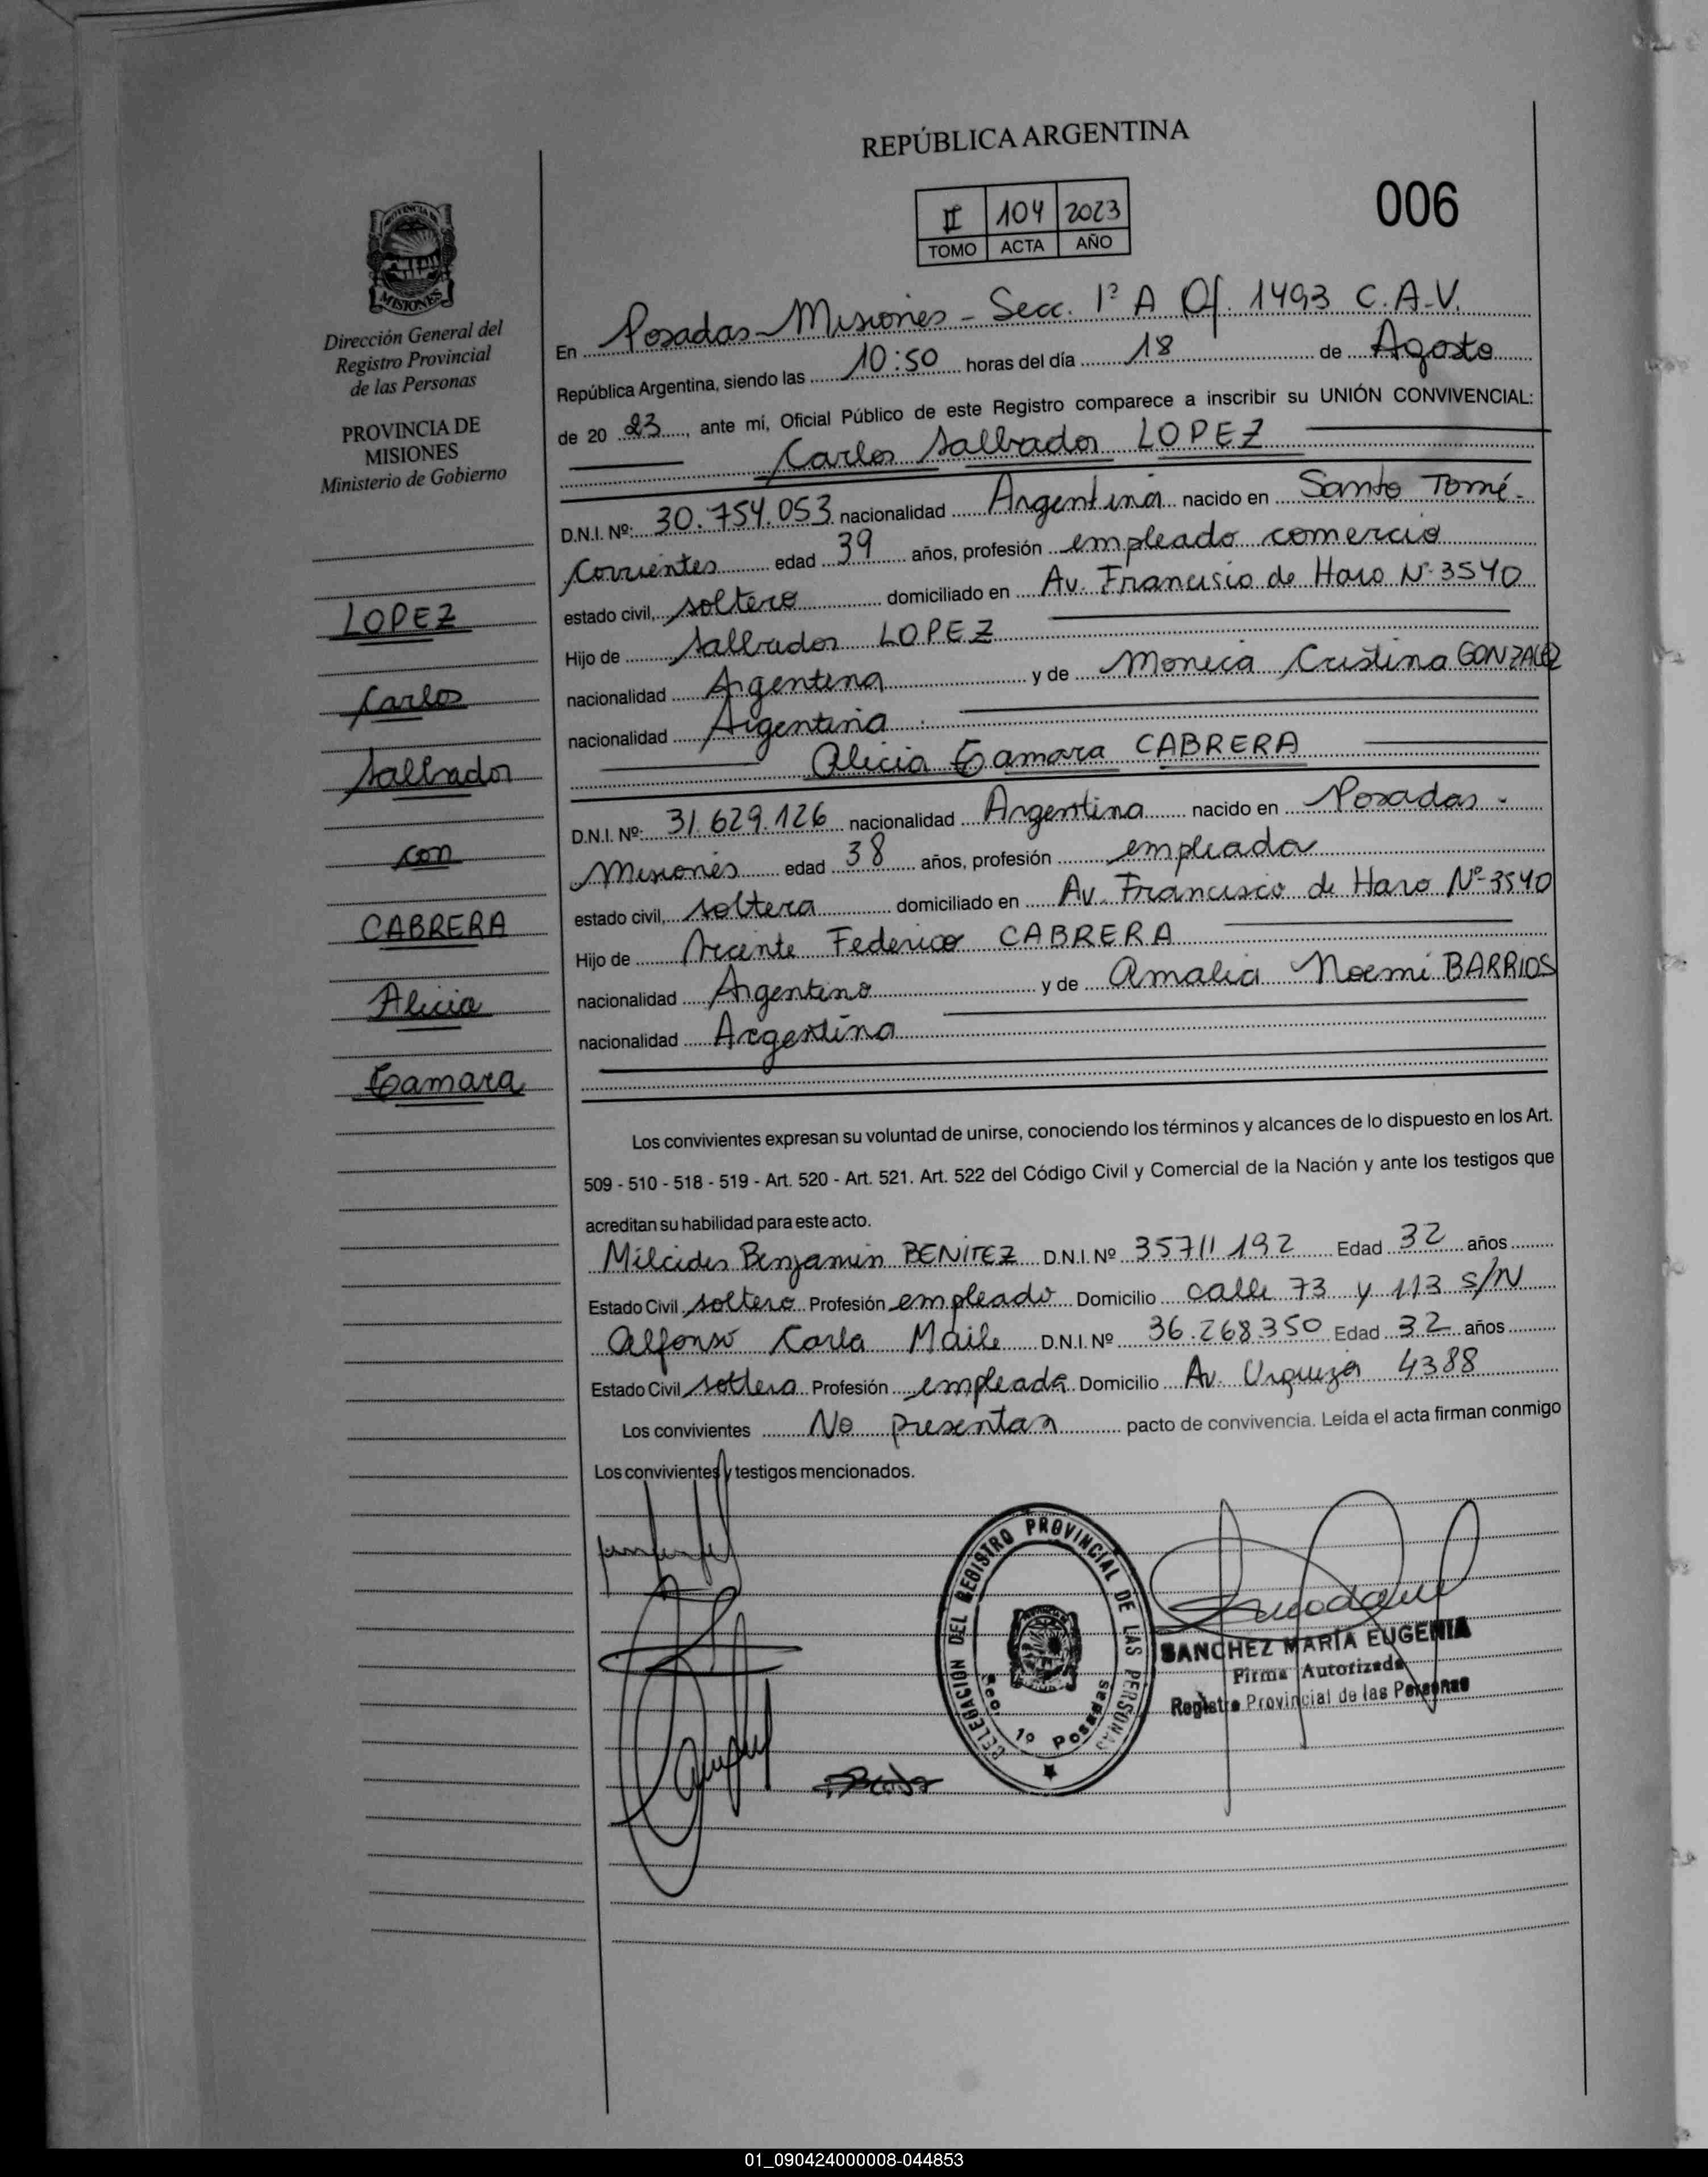 REPÚBLICA ARGENTINA
006
II 104 2023
TOMO ACTA AÑO
PROVINCIA DE
MISIONES
Dirección General del
Registro Provincial
de las Personas
PROVINCIA DE
MISIONES
Ministerio de Gobierno
LOPEZ
Carlos
Salbador
con
CABRERA
Alicia
Tamara
En Posadas - Misiones - Secc. 1ª A Of. 1493 C.A.V.
República Argentina, siendo las 10:50 horas del día 18 de Agosto
de 20 23, ante mí, Oficial Público de este Registro comparece a inscribir su UNIÓN CONVIVENCIAL:
Carlos Salbador LOPEZ
D.N.I. Nº: 30.754.053 nacionalidad Argentina nacido en Santo Tomé -
Corrientes edad 39 años, profesión empleado comercio
estado civil, soltero domiciliado en Av. Francisco de Haro Nº 3540
Hijo de Salbador LOPEZ
nacionalidad Argentina y de Monica Cristina GONZALEZ
nacionalidad Argentina
Alicia Tamara CABRERA
D.N.I. Nº: 31.629.126 nacionalidad Argentina nacido en Posadas -
Misiones edad 38 años, profesión empleada
estado civil, soltera domiciliado en Av. Francisco de Haro Nº 3540
Hijo de Federico CABRERA
nacionalidad Argentino y de Amalia Noemi BARRIOS
nacionalidad Argentina
Los convivientes expresan su voluntad de unirse, conociendo los términos y alcances de lo dispuesto en los Art.
509 - 510 - 518 - 519 - Art. 520 - Art. 521. Art. 522 del Código Civil y Comercial de la Nación y ante los testigos que
acreditan su habilidad para este acto.
Milcides Benjamin BENITEZ D.N.I. Nº 35711192 Edad 32 años
Estado Civil soltero Profesión empleado Domicilio calle 73 y 113 s/N
Alfonso Karla Maile D.N.I. Nº 36.268.350 Edad 32 años
Estado Civil soltera Profesión empleada Domicilio Av. Urquiza 4388
Los convivientes No presentan pacto de convivencia. Leída el acta firman conmigo
Los convivientes y testigos mencionados.
DELEGACION DEL REGISTRO PROVINCIAL DE LAS PERSONAS
Sec. 1º Posadas
SANCHEZ MARÍA EUGENIA
Firma Autorizada
Registro Provincial de las Personas
01_090424000008-044853